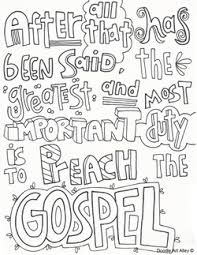 AFTER all that has
BEEN SAID, the
greatest and MOST
IMPORTANT duty
is TO PREACH THE
GOSPEL
Doodle Art Alley ©